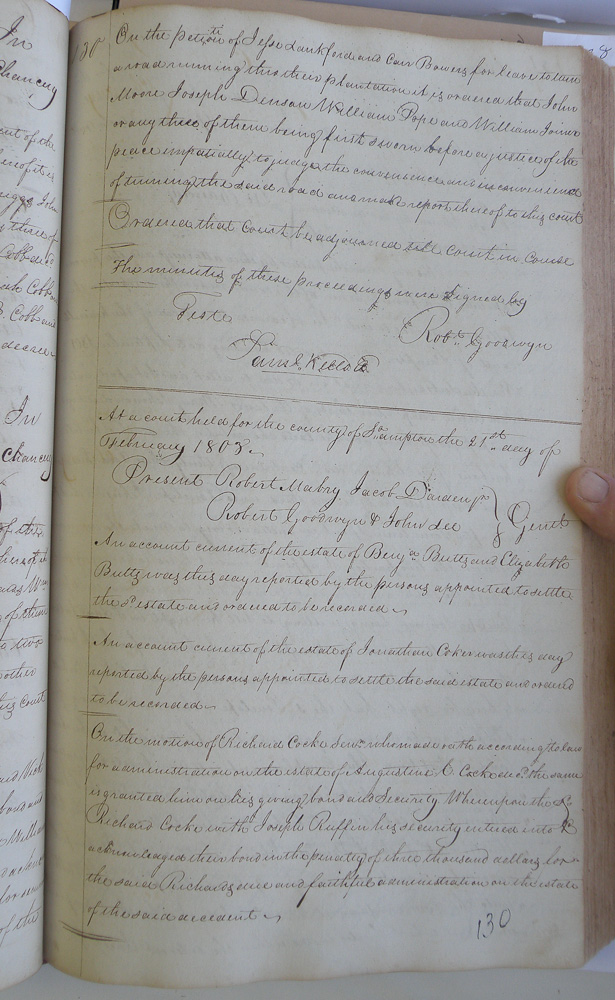 In
Chancery
ent of the
John
three of
Cobb
Cobb and
decree
In
Chancery
of this
of them
two
other
this Court
bond and
William
of the
130
On the petitn of Jesse Lankford and Carr Bowers for leave to turn
a road running thro their plantation it is ordered that John
Moore Joseph Denson William Pope and William Joiner
or any three of them being first sworn before a justice of the
peace impartially to judge the convenience and inconvenience
of turning the said road and make report thereof to this court
Ordered that Court be adjourned till Court in Course
The minutes of these proceedings were Signed by
Teste
Robt. Goodwyn
Saml. Kello Ck
At a court held for the county of So.ampton the 21st. day of
February 1803.
Present Robert Mabry Jacob Darden jr
Robert Goodwyn & John Lee } Gent
An account current of the estate of Benja. Butts and Elizabeth
Butts was this day reported by the persons appointed to settle
the sd. estate and ordered to be recorded
An account current of the estate of Jonathan Coker was this day
reported by the persons appointed to settle the said estate and ordered
to be recorded
On the motion of Richard Cocke Senr. who made oath according to law
for administration on the estate of Augustine C. Cocke decd. the same
is granted him on his giving bond and Security Whereupon the sd.
Richard Cocke with Joseph Ruffin his security entered into &
acknowledged their bond in the penalty of three thousand dollars for
the said Richards due and faithful administration on the estate
of the said decedent
130